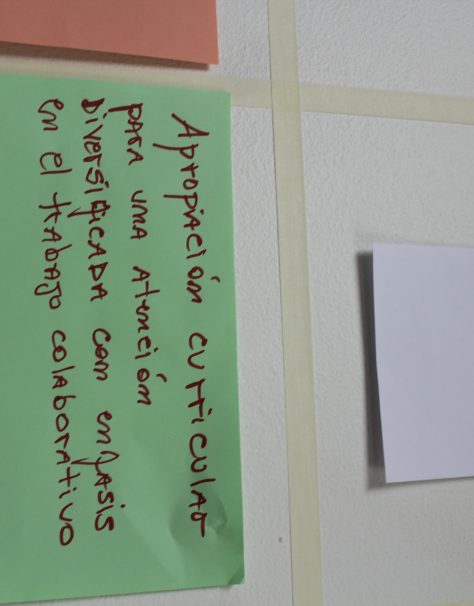 Apropiación curricular
para una atención
Diversificada con enfasis
en el trabajo colaborativo